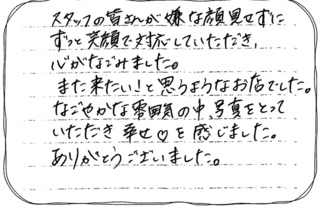 スタッフの皆さんが嫌な顔見せずに
ずっと笑顔で対応していただき、
心がなごみました。
また来たい！と思うようなお店でした。
なごやかな雰囲気の中、写真をとって
いただき幸せ♡を感じました。
ありがとうございました。